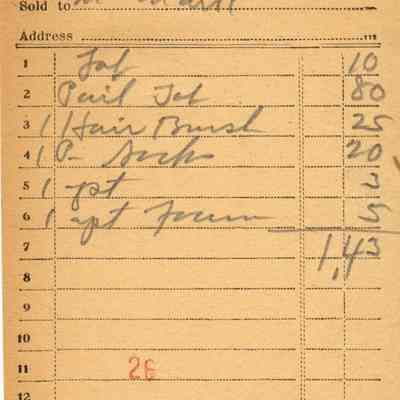 Sold to
Address
1 10
2 Pail 80
3 1 Hair Brush 25
4 1 P- Socks 20
5 1 3
6 1 5
7 1,43
8
9
10
11 26
12